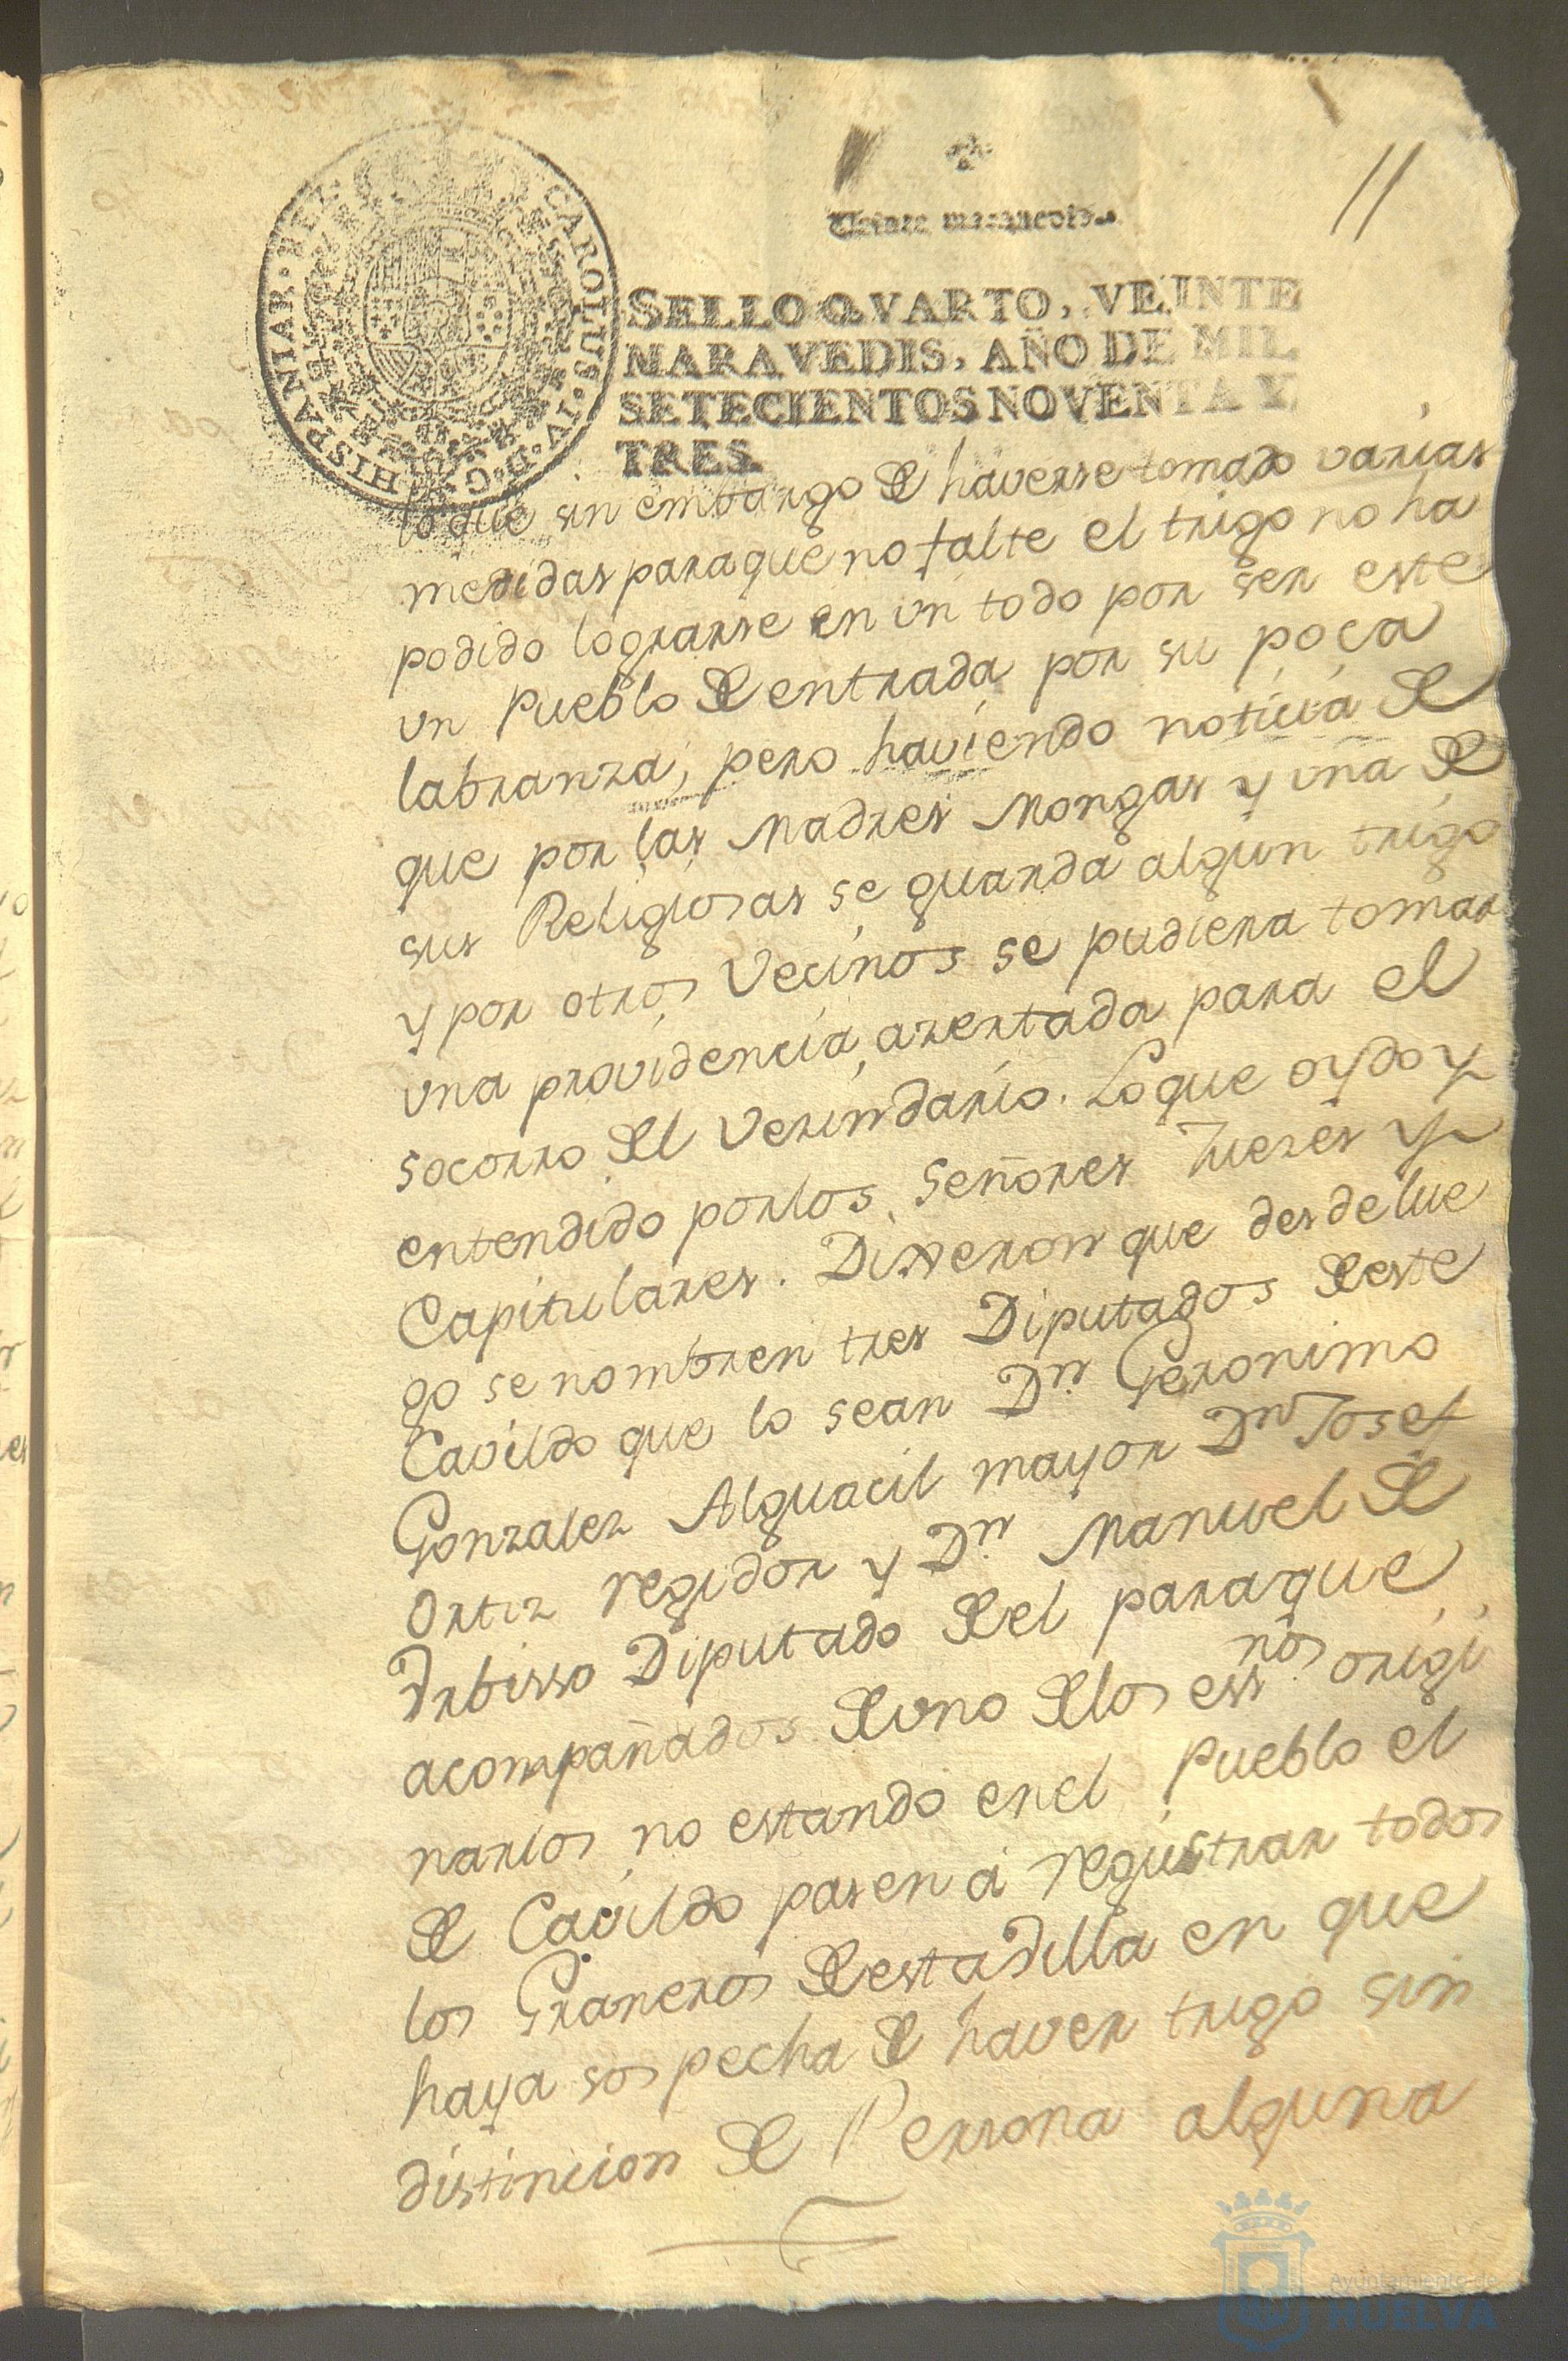 11
Veinte maravedis.
HISPANIAR. REX. CAROLUS. IV. D. G.
SELLO QVARTO, VEINTE
MARAVEDIS, AÑO DE MIL
SETECIENTOS NOVENTA Y
TRES.
lo que sin embargo de haverse tomado varias
medidas paraque no falte el trigo no ha
podido lograrse en un todo por ser este
un Pueblo de entrada por su poca
labranza; pero haviendo noticia de
que por las Madres Mongas y una de
sus Religiosas se guarda algun trigo
y por otros Vecinos se pudiera tomar
una providencia azertada para el
socorro del Vezindario. Loque oydo y
entendido porlos Señores Juezes y
Capitulares. Dixeron que desde lue
go se nombren tres Diputados deeste
Cavildo que lo sean Dn. Geronimo
Gonzalez Alguacil mayor Dn Josef
Ortiz regidor y Dn. Manuel de
Diputado del paraque
acompañados deuno delos essnos. origi
narios no estando enel Pueblo el
de Cavildo pasen a registrar todos
los Graneros deesta Villa en que
haya sospecha de haver trigo sin
distincion de Persona alguna
Ayuntamiento de
HUELVA